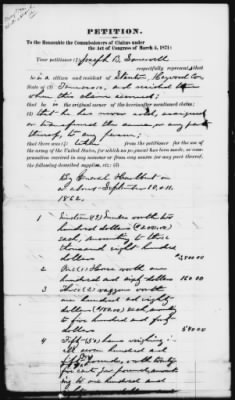 PETITION.
To the Honorable the Commissioners of Claims under
the Act of Congress of March 3, 1871:
Your petitioner (1) Joseph B.
respectfully represents that
he is a citizen and resident of Stanton, Haywood Co
State of Tennessee, and resided there
when this claim accrued;
that he is the original owner of the hereinafter mentioned claims;
(2) that he has never sold, assigned
or transferred the same, or any part
thereof, to any person;
that there was (3) taken from the petitioner for the use of
the army of the United States, for which no payment has been made, or com-
pensation received in any manner or from any source for any part thereof,
the following described supplies, etc: (4)
By General Hurlbut on
or about September 10, & 11,
1862,
1 mules worth two
hundred dollars ($200.00)
each, amounting to three
thousand eight hundred
dollars $3800.00
2 One (1) Horse worth one
hundred and sixty dollars 160.00
3 Three (3) waggons worth
one hundred and eighty
dollars ($180.00) each, amounting
to five hundred and forty
dollars 540.00
4 Fifty (50) hams weighing in
all seven hundred and
pounds, worth twenty
cents per pound, amount-
ing to one hundred and